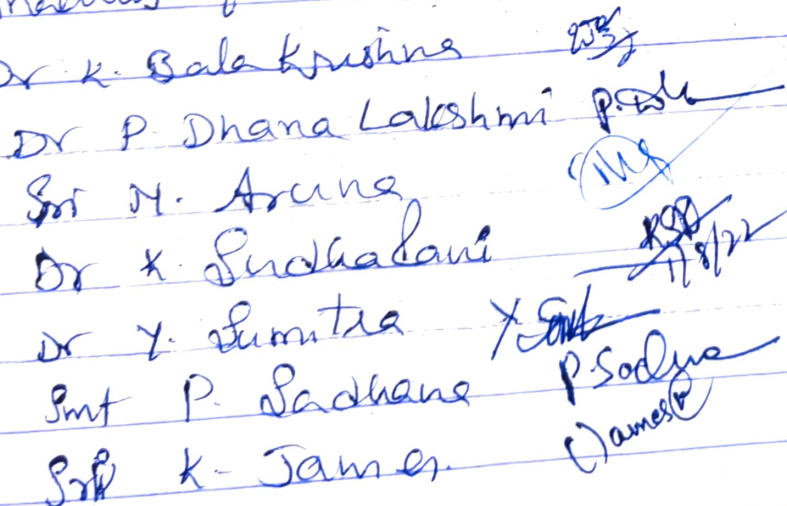 Dr K. Bala Krishna
Dr P. Dhana Lakshmi P.
Sri M. Aruna
Dr K. Sudha Rani KSR 1/8/22
Dr Y. Sumitra Y.
Smt P. Sadhana P.
Sri K- James. James